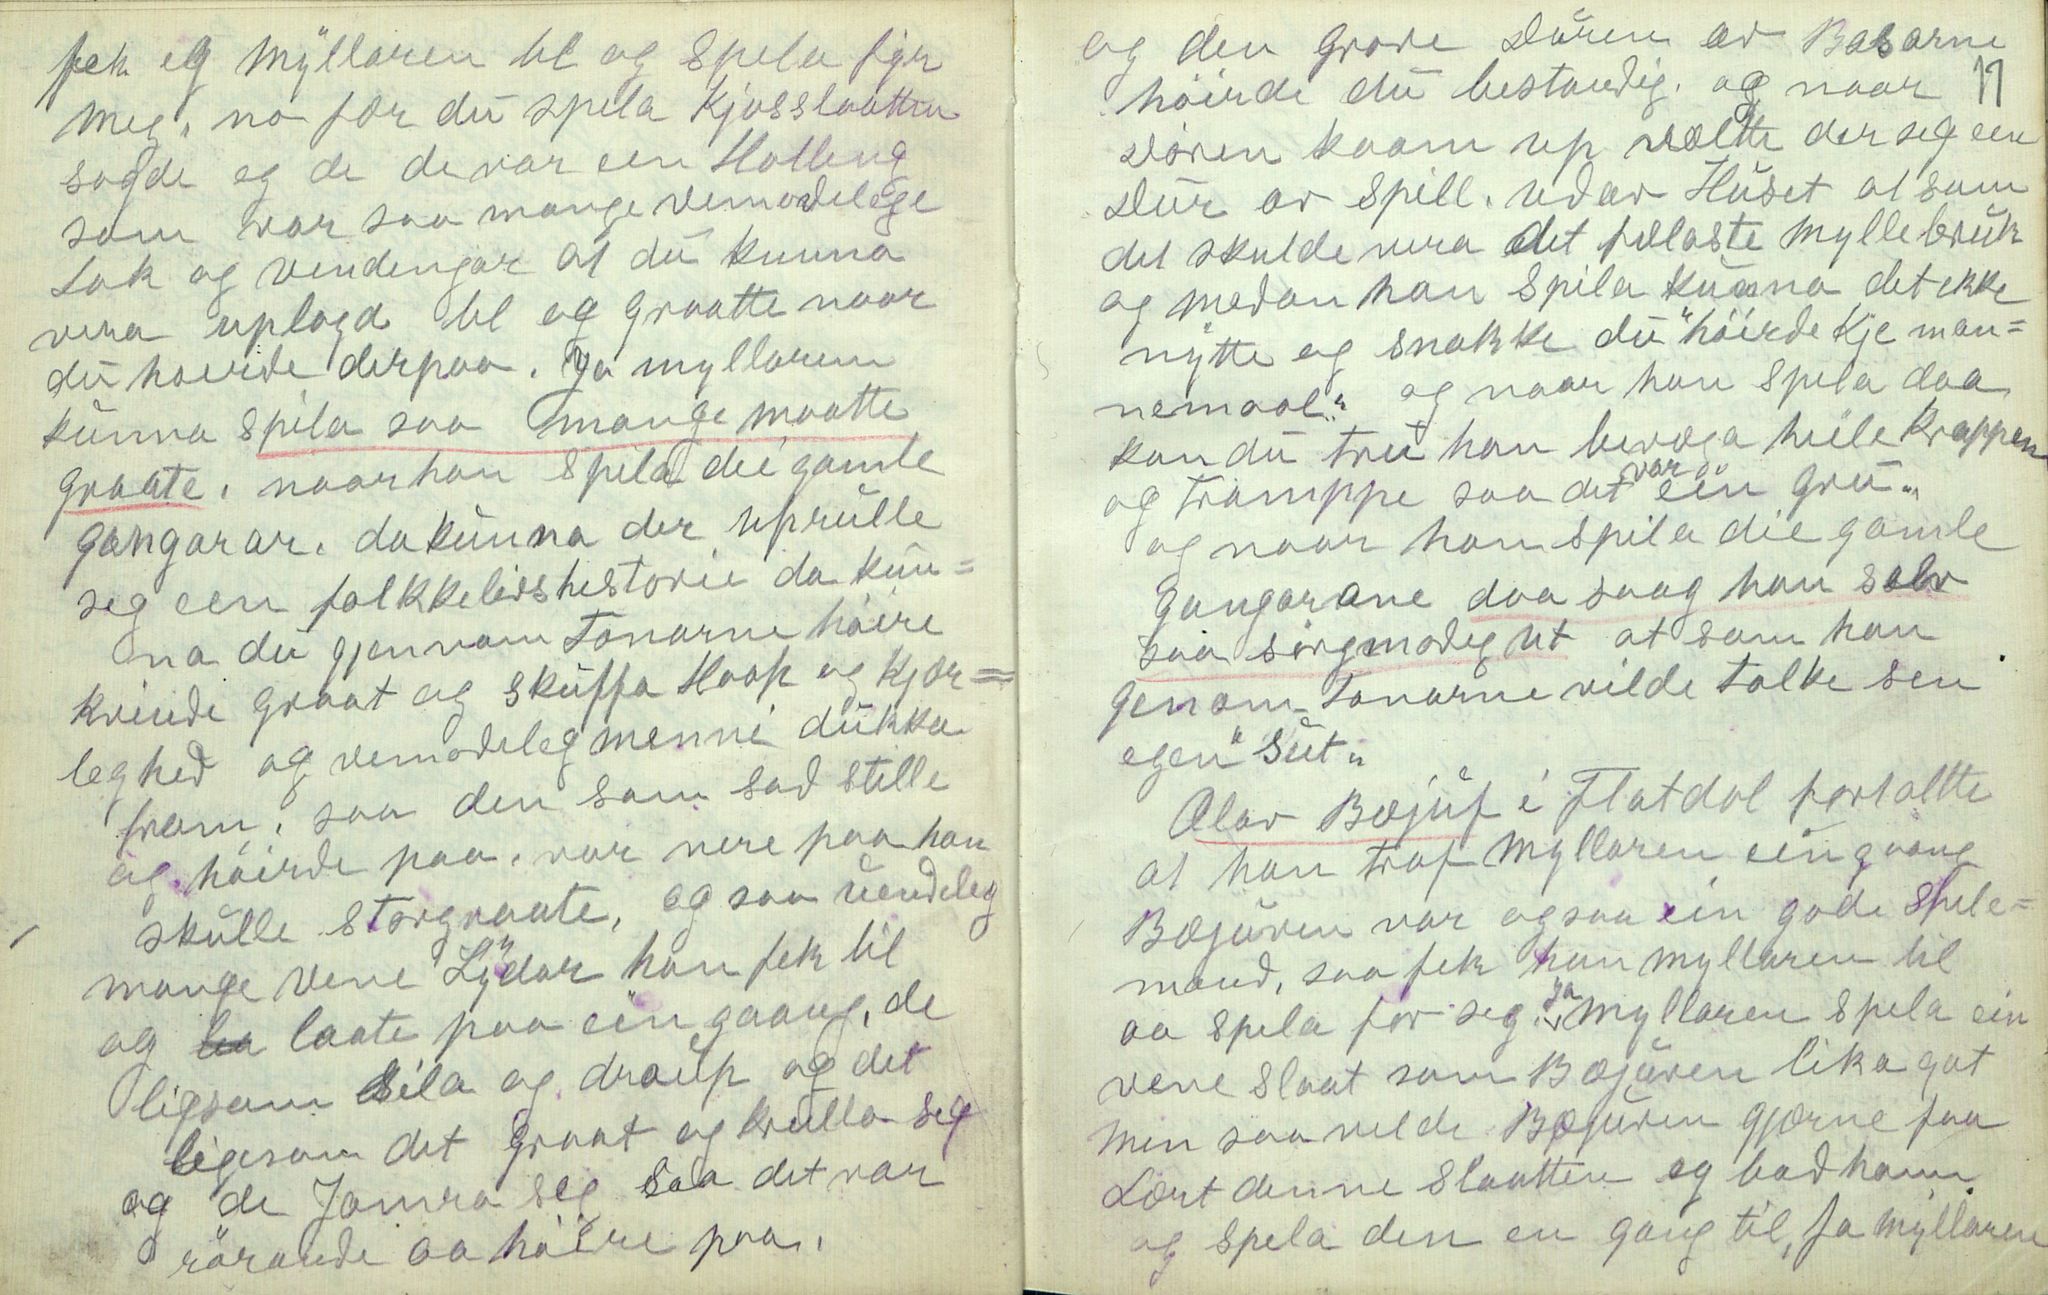 fek eg Myllaren til og Spela fyr
meg, no fær du spela Kjosslaatten
sagde eg de de var ein Halleng
som var saa mange vemodelege
Lak og vendengar at du kunna
vera uplagd til og graatte naar
du hoirde derpaa. Ja myllaren
kunna spela saa mange maatte
graate, naar han spela dei gamle
gangarar. da kunna der uprulle
seg een folkkelivshistorie da kun=
na du gjennom Tonarne höire
kvinde graat og skuffa Haap og kjær=
leghed og vemodeleg menni dukka
fram, saa den som sad stille
og höirde paa, var nere paa han
skulle storgraate, og saa uendeleg
mange vene "Lydar" han fek til
og laate paa ein gaang, de
ligsom sila og draup og det
ligesom det graat og krulla seg
og de Jamra seg saa det var
rörande aa höire paa.
og den grove Duren av Basarne
höirde du bestandig. og naar 11
Dören kaam up vælte der seg een
Dur av Spill. ud av Huset at som
det skulde vera det fælaste myllebruk
og medan han Spila kunna det ikke
nytte og snakke du "höirde kje man=
nemaal" og naar han Spela daa
kan du tru han bevæga heile kroppen
og tramppe saa det var ein gru"
og naar han spila die gamle
gangarane daa saag han selv
saa sörgmodeg ut at som han
genom Tonarne vilde tolke sen
egen "Sut"
Olav Bæjuf i Flatdal fortaltte
at han traf Myllaren ein gaang
Bæjuven var ogsaa ein gode Spele=
mand, saa fek han myllaren til
aa spela for seg. Ja Myllaren spela ein
vene slaat som Bæjuven lika gat
men saa velde Bæjuven gjærne faa
Lært denne slaatten og bad ham
og spela den en gang til, Ja myllaren